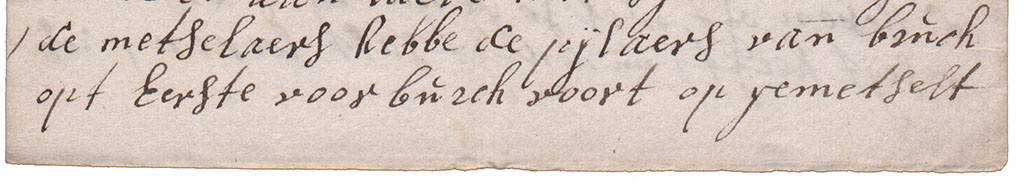 de metselaers hebbe de pijlaers van bruch
opt Eerste voorburch voort op gemetselt